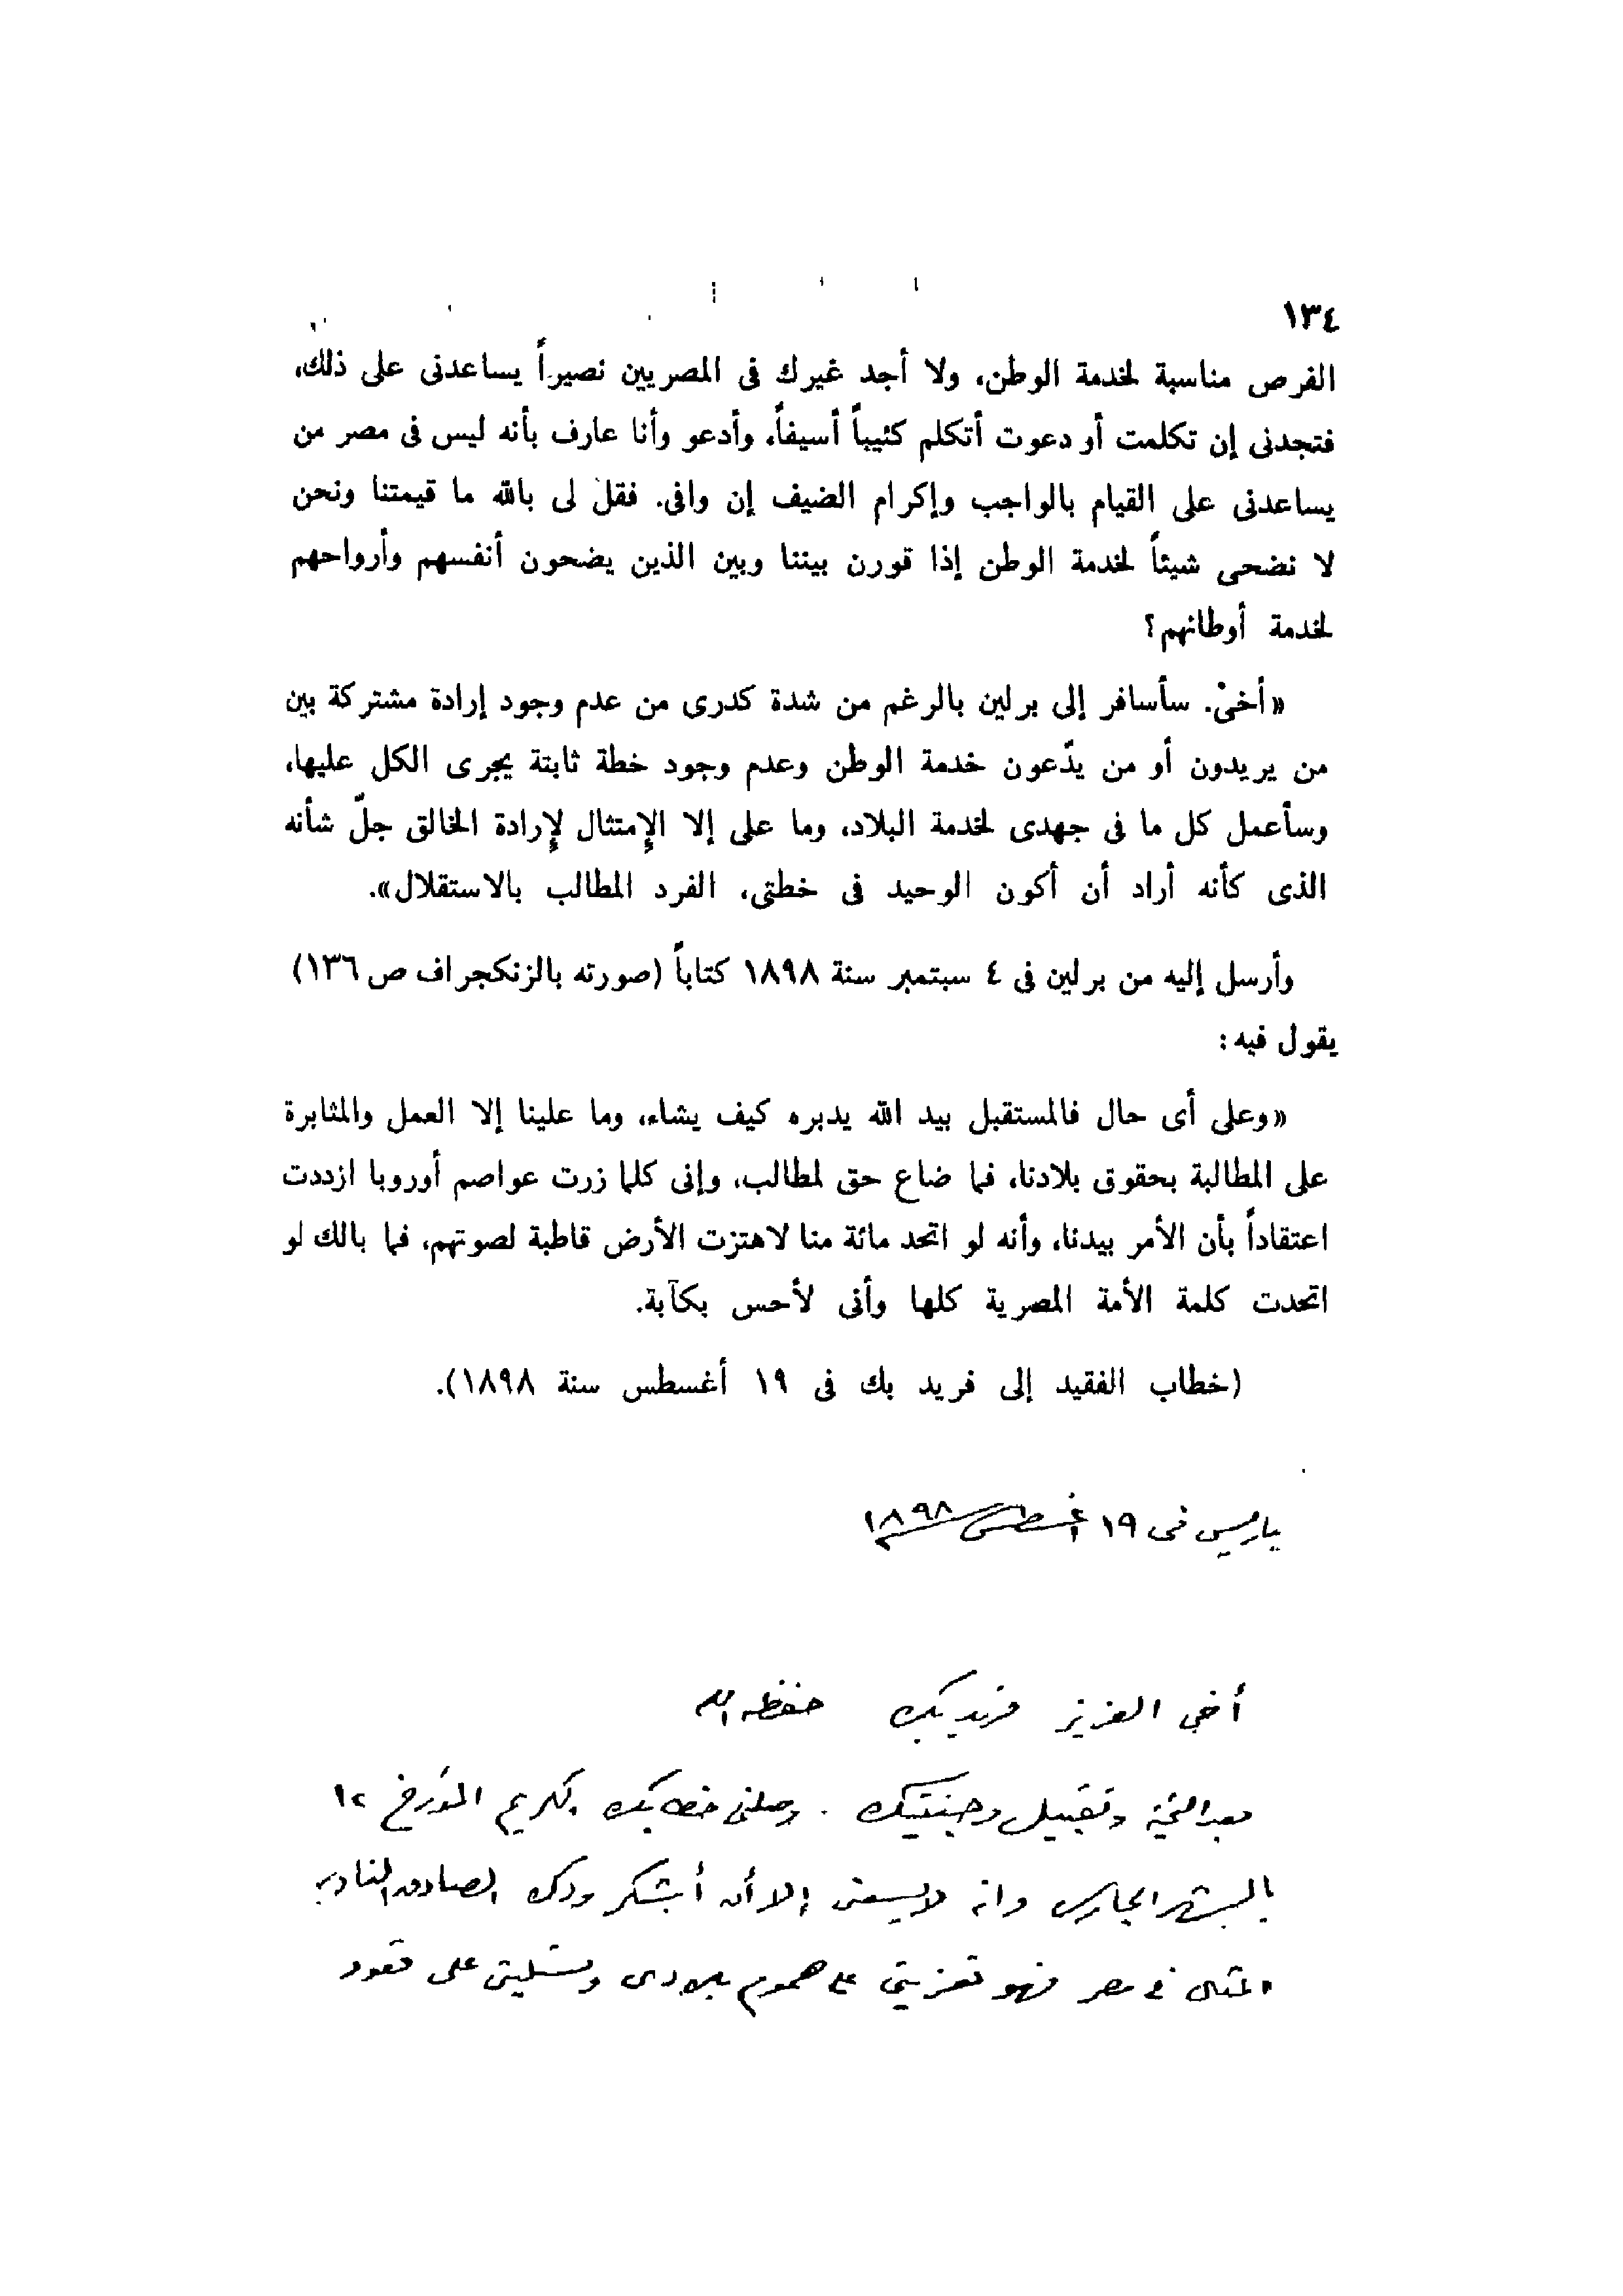 ١٣٤
الفرص مناسبة لخدمة الوطن، ولا أجد غيرك فى المصريين نصيراً يساعدنى على ذلك،
فتجدنى إن تكلمت أو دعوت أتكلم كئيباً أسيفاً، وأدعو وأنا عارف بأنه ليس فى مصر من
يساعدنى على القيام بالواجب وإكرام الضيف إن وافى. فقل لى بالله ما قيمتنا ونحن
لا نضحى شيئاً لخدمة الوطن إذا قورن بيننا وبين الذين يضحون أنفسهم وأرواحهم
لخدمة أوطانهم؟
«أخىْ. سأسافر إلى برلين بالرغم من شدة كدرى من عدم وجود إرادة مشتركة بين
من يريدون أو من يدّعون خدمة الوطن وعدم وجود خطة ثابتة يجرى الكل عليها،
وسأعمل كل ما فى جهدى لخدمة البلاد، وما على إلا الإمتثال لإرادة الخالق جلّ شأنه
الذى كأنه أراد أن أكون الوحيد فى خطتى، الفرد المطالب بالاستقلال».
وأرسل إليه من برلين فى ٤ سبتمبر سنة ١٨٩٨ كتاباً (صورته بالزنكجراف ص ١٣٦)
يقول فيه:
«وعلى أى حال فالمستقبل بيد الله يدبره كيف يشاء، وما علينا إلا العمل والمثابرة
على المطالبة بحقوق بلادنا، فما ضاع حق لمطالب، وإنى كلما زرت عواصم أوروبا ازددت
اعتقاداً بأن الأمر بيدنا، وأنه لو اتحد مائة منا لاهتزت الأرض قاطبة لصوتهم، فما بالك لو
اتحدت كلمة الأمة المصرية كلها وأنى لأحس بكآبة.
(خطاب الفقيد إلى فريد بك فى ١٩ أغسطس سنة ١٨٩٨).
باريس فى ١٩ اغسطس ١٨٩٨
أخى العزيز فريد بك حفظه الله
بعد التحية وتقبيل وجنتيك. وصلنى خطابك الكريم المؤرخ ١٢
بالشهر الجارى وانه لا يسعنى إلا أن أشكر ودك الصادق النادر
المثال فى مصر فهو تعزيتى على هموم بلادى وتسليتى على قعود